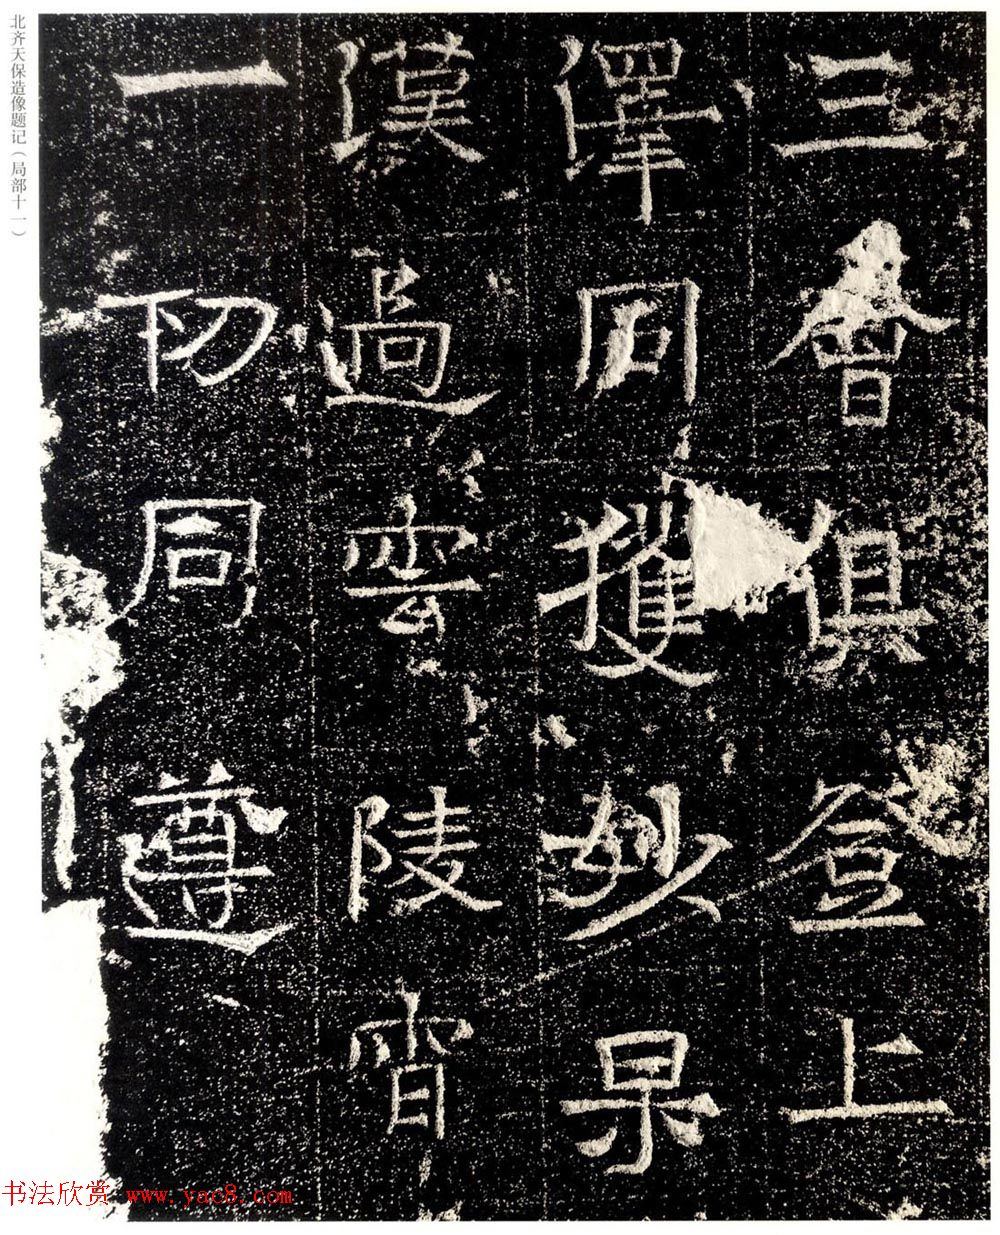 北齐天保造像题记（局部十一）
三會俱登上
澤同獲妙果
漢逈雲陵霄
一切同遵
书法欣赏 www.yac8.com